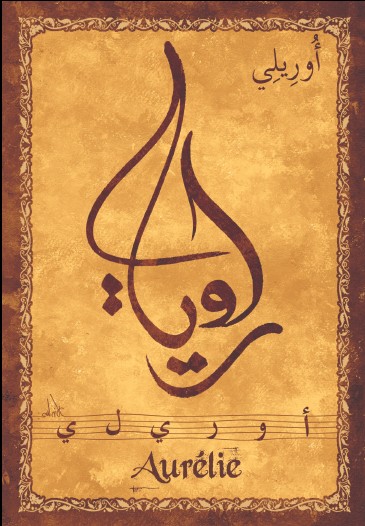 أُورِيلِي
اوريلي
أ و ر ي ل ي
Aurélie